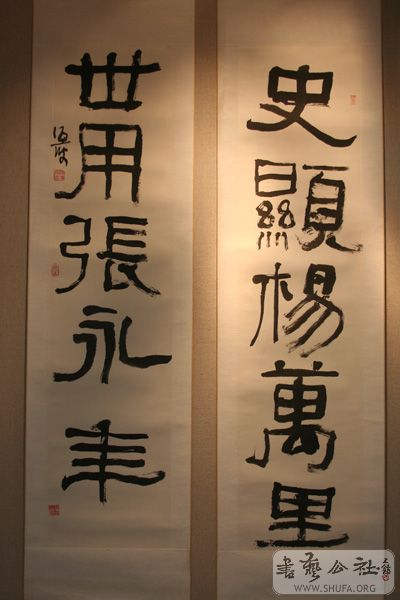 史顯楊萬里
世用張永年
書藝公社
WWW.SHUFA.ORG